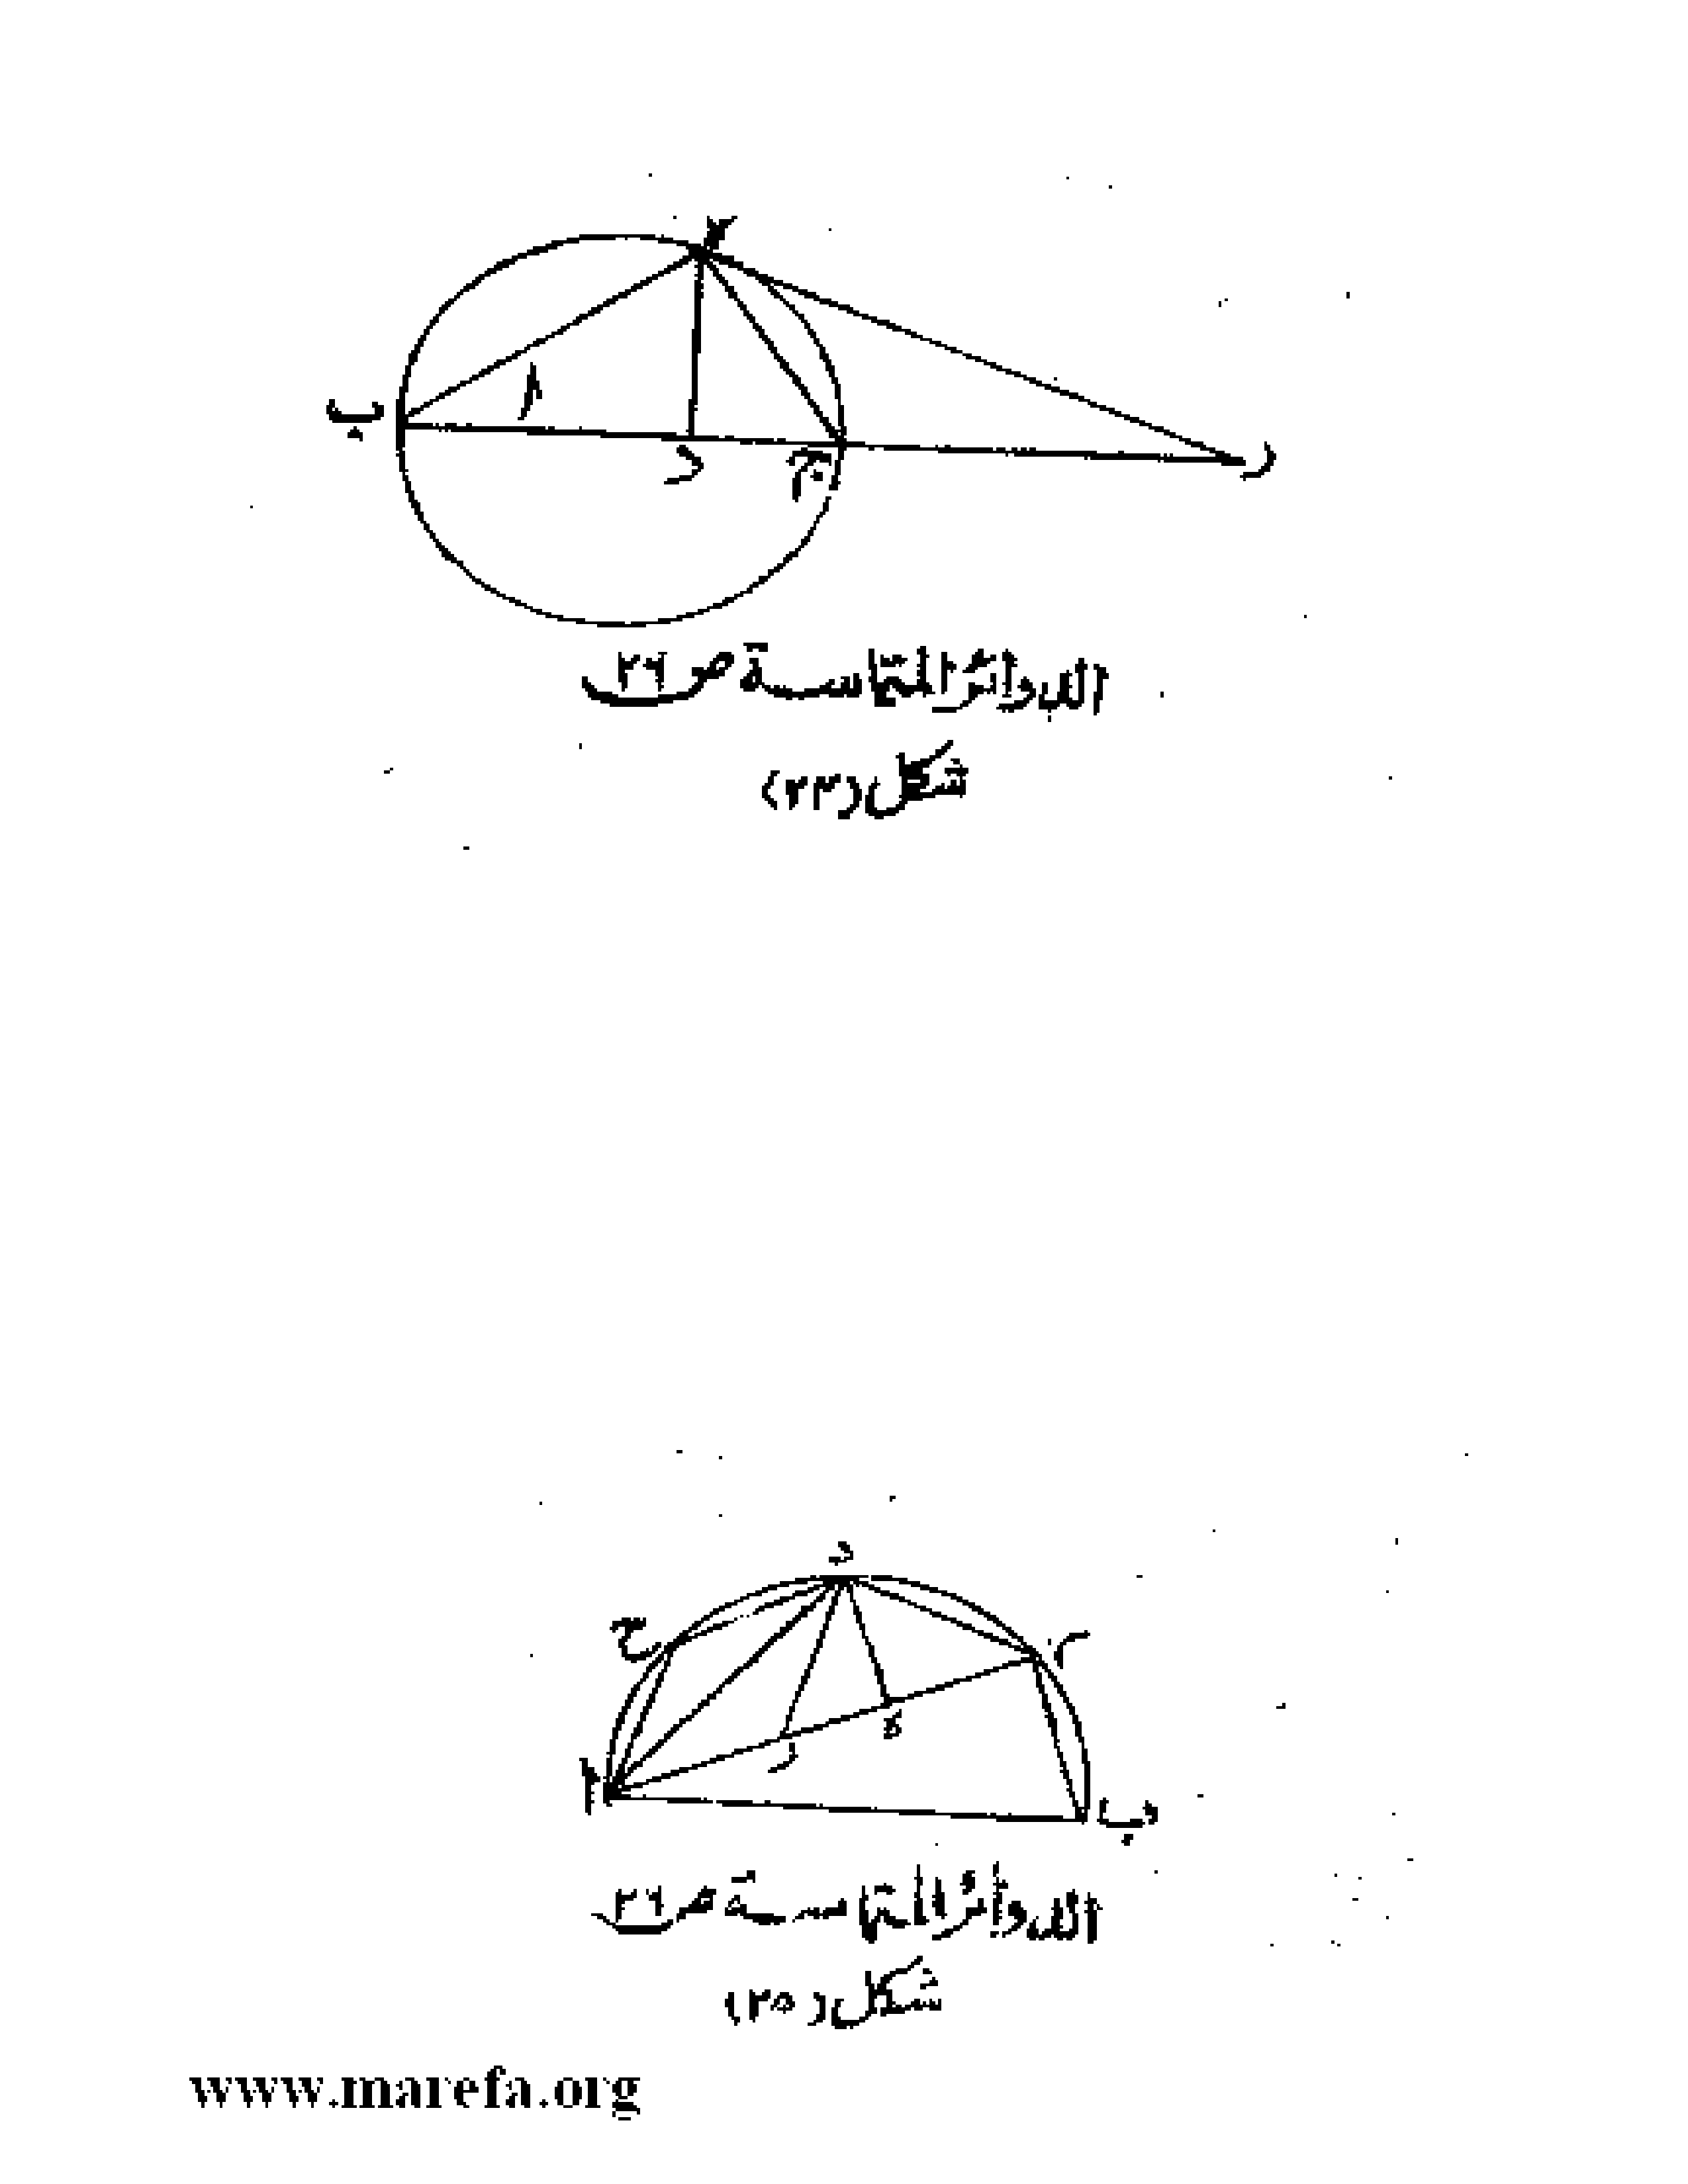 ب
ا
د
ج
ر
الدوائر المتماسة ص ٢٦
شكل (٢٣)
د
ح
ر
ه
ا
ب
الدوائر المتماسة ص ٢٦
شكل (٢٥)
www.marefa.org